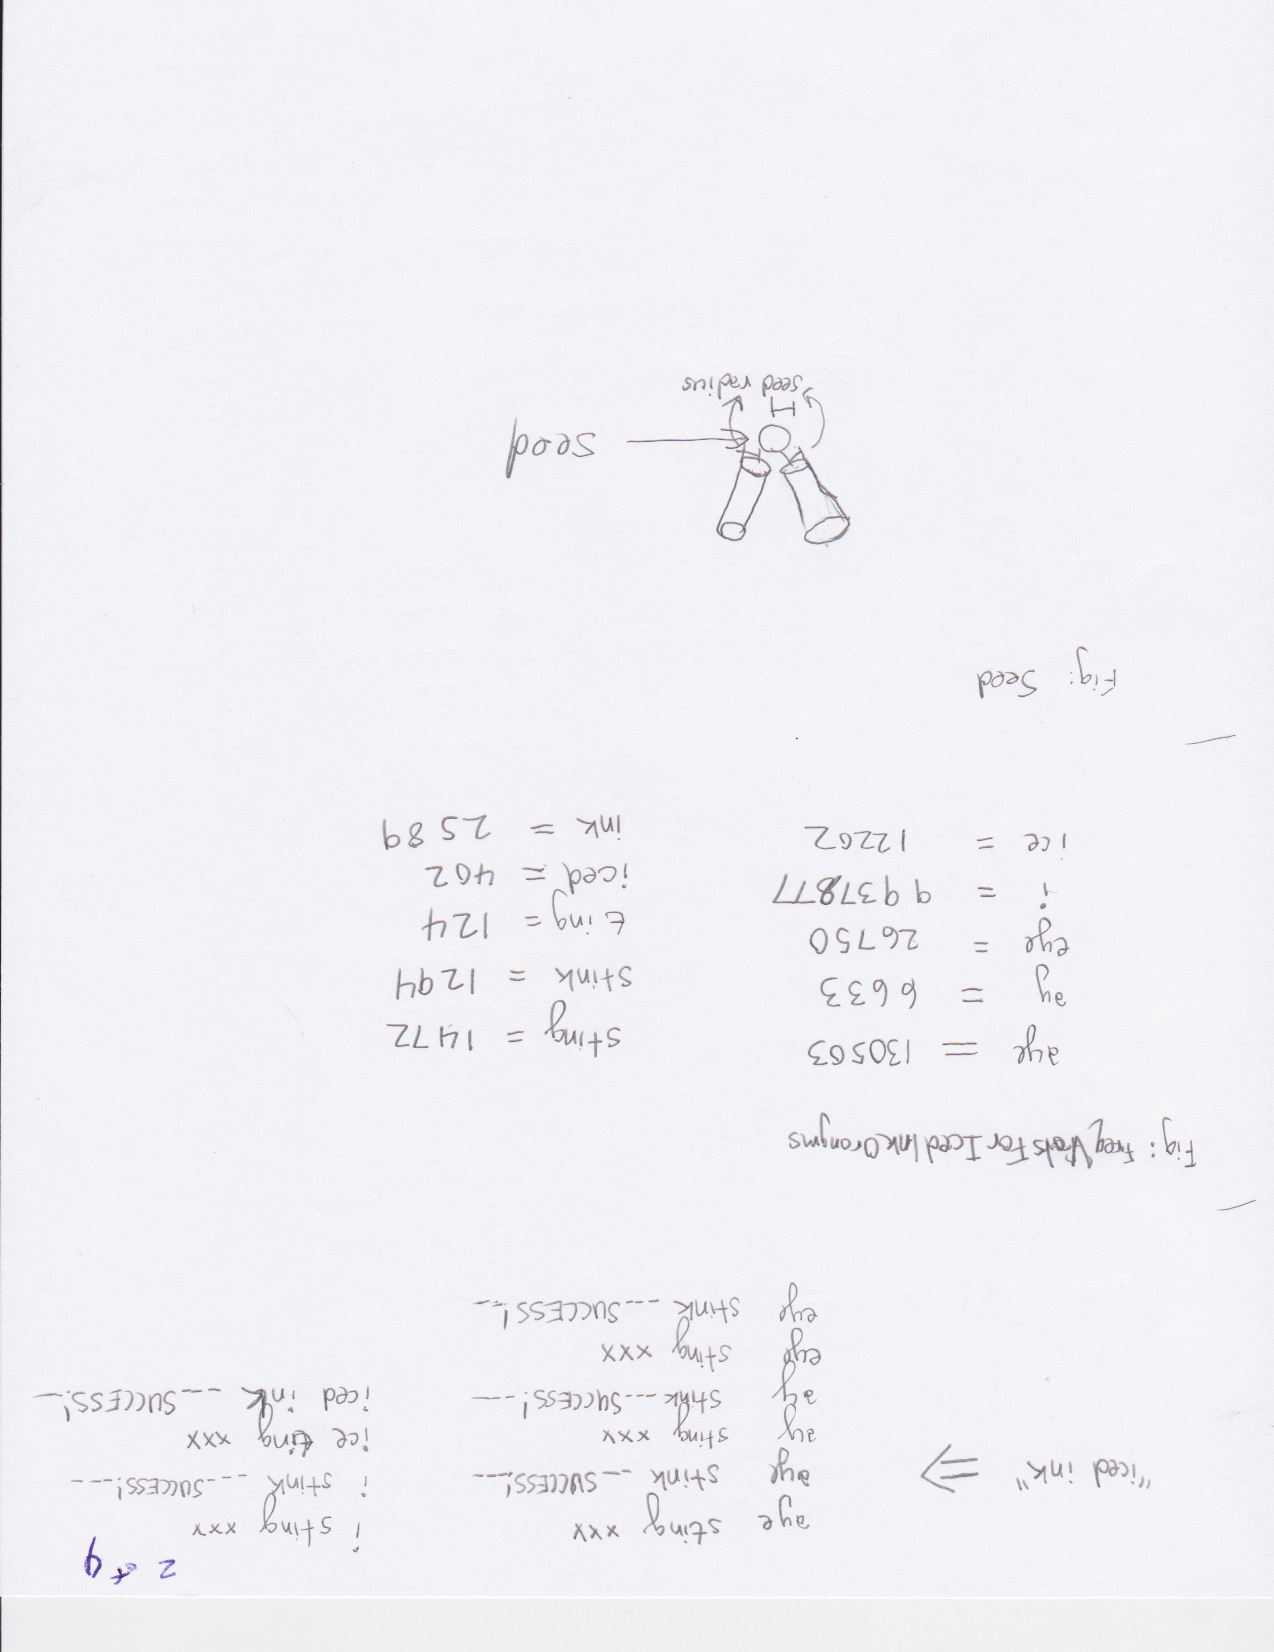 2 of 4
"iced ink" ⇒
aye sting xxx
aye stink __SUCCESS!___
ay sting xxx
ay stink ___SUCCESS!___
eye sting xxx
eye stink ___SUCCESS!__
i sting xxx
i stink ___SUCCESS!___
ice ting xxx
iced ink ___SUCCESS!_
Fig: Freq For Iced Ink Oronyms
aye = 130503
ay = 6633
eye = 26750
i = 9937877
ice = 12202
sting = 1472
stink = 1294
ting = 124
iced = 402
ink = 2589
Fig: Seed
seed
seed radius